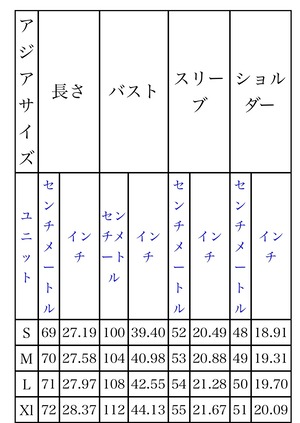 アジアサイズ 長さ バスト スリーブ ショルダー
ユニット センチメートル インチ センチメートル インチ センチメートル インチ センチメートル インチ
S 69 27.19 100 39.40 52 20.49 48 18.91
M 70 27.58 104 40.98 53 20.88 49 19.31
L 71 27.97 108 42.55 54 21.28 50 19.70
Xl 72 28.37 112 44.13 55 21.67 51 20.09